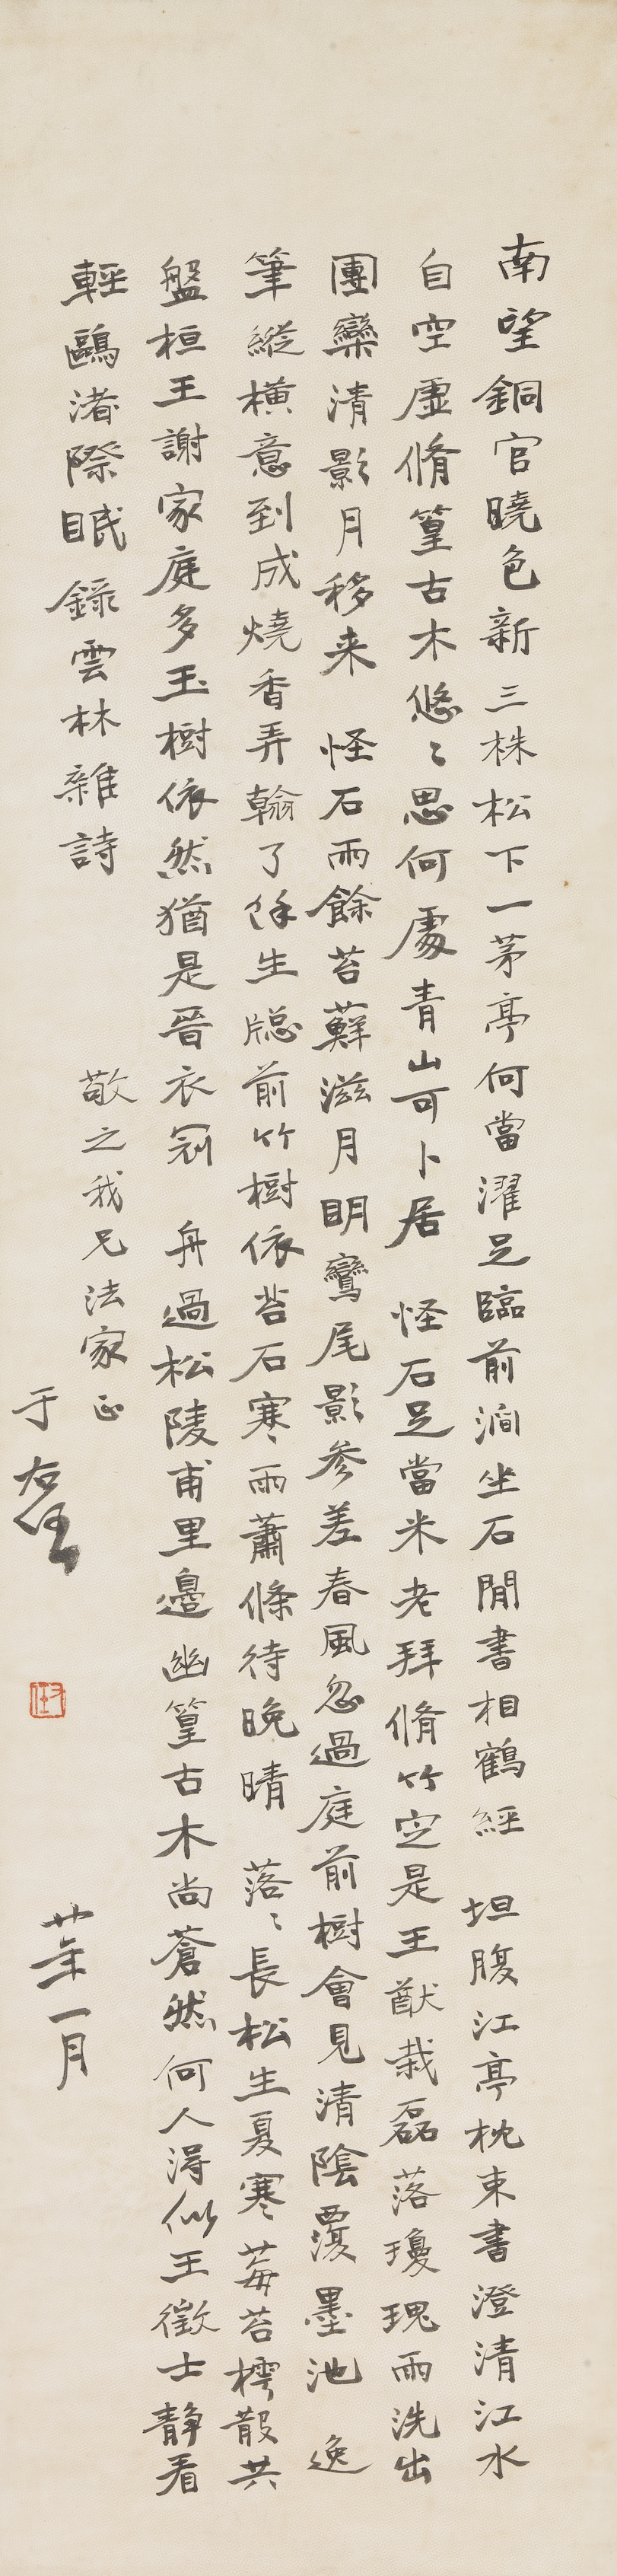 南望銅官曉色新三株松下一茅亭何當濯足臨前澗坐石閒書相鶴經　坦腹江亭枕束書澄清江水
自空虛脩篁古木悠〻思何處青山可卜居　怪石足當米老拜脩竹定是王猷栽磊落瓊瑰雨洗出
團欒清影月移来　怪石雨餘苔蘚滋月明鸞尾影參差春風忽過庭前樹會見清陰覆墨池　逸
筆縱横意到成燒香弄翰了餘生牕前竹樹依苔石寒雨蕭條待晚晴　落〻長松生夏寒莓苔樗散共
盤桓王謝家庭多玉樹依然猶是晉衣冠　舟過松陵甫里邊幽篁古木尚蒼然何人得似王徵士靜看
輕鷗渚際眠　錄雲林雜詩
敬之我兄法家正
于右任
廿年一月